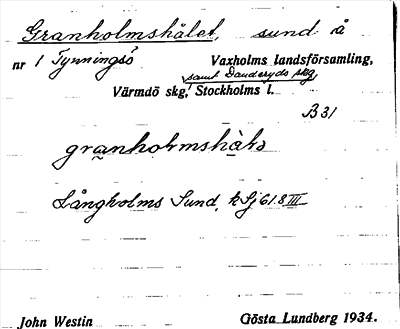 Granholmshålet, sund å
nr 1 Tynningsö Vaxholms landsförsamling,
samt Danderyds skg,
Värmdö skg, Stockholms l.
B31
granholmshàlə
Långholms Sund, kSj 61.8 III
John Westin Gösta Lundberg 1934.